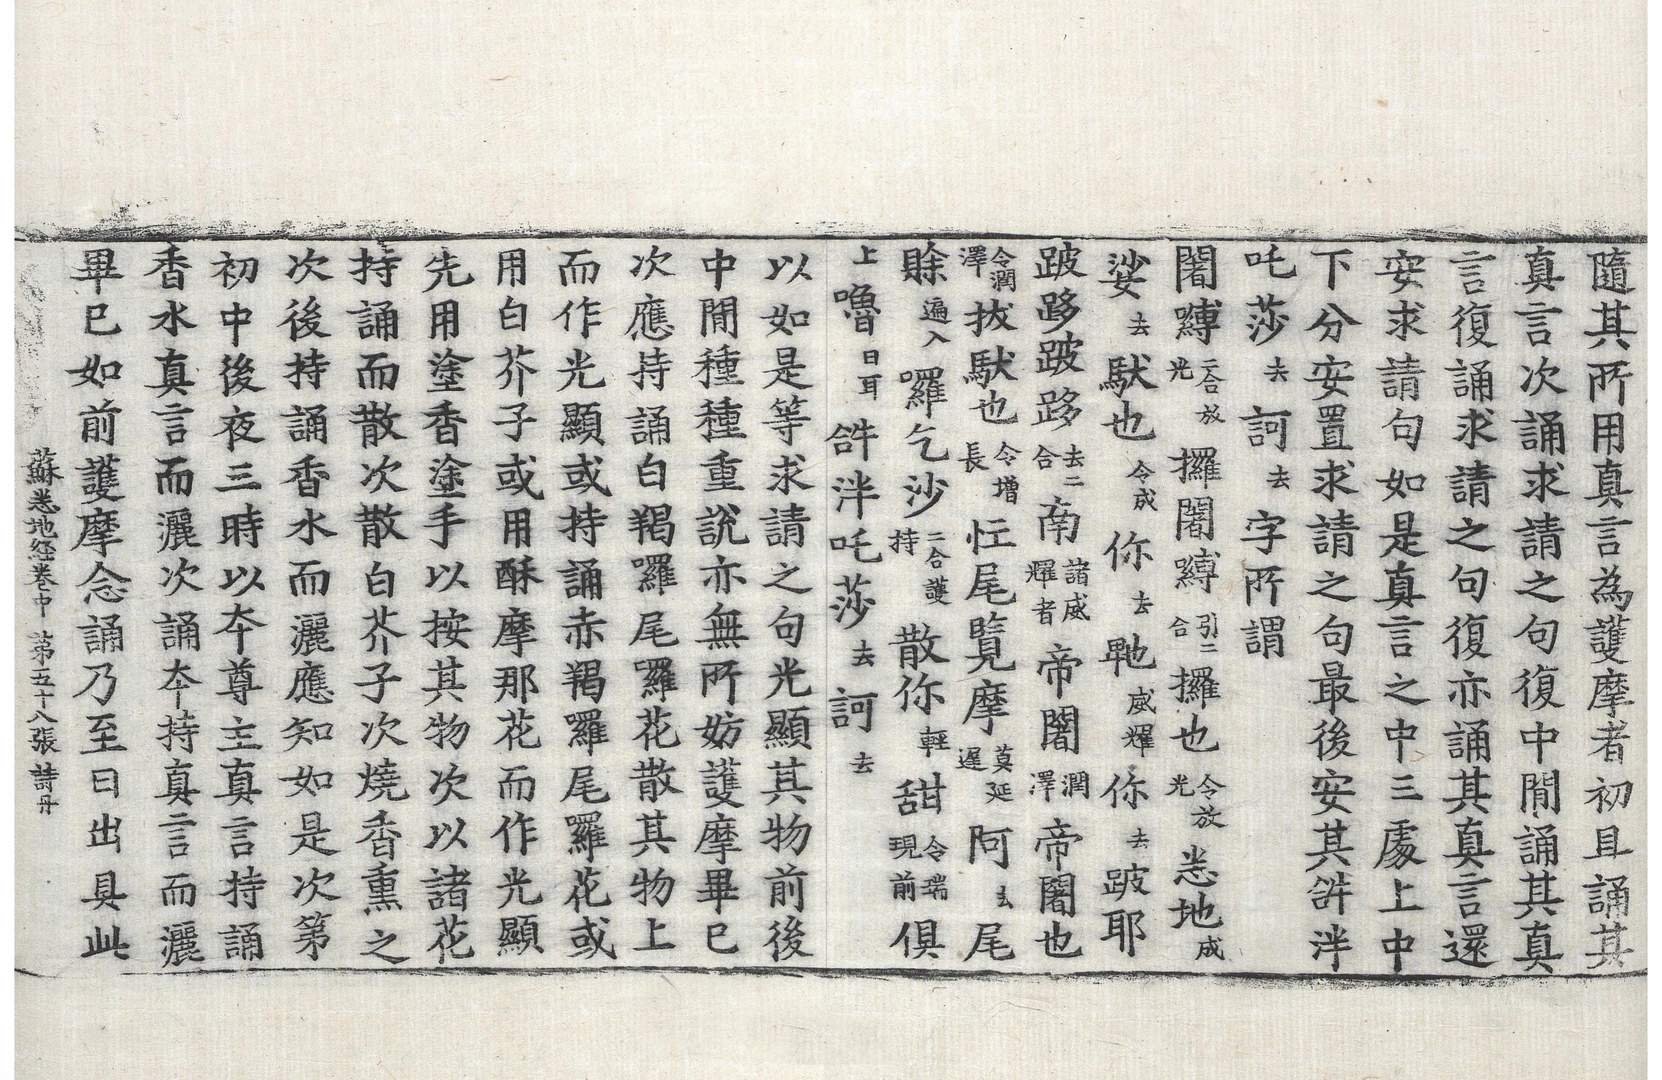 隨其所用真言為護摩者初且誦其
真言次誦求請之句復中閒誦其真
言復誦求請之句復亦誦其真言還
安求請句如是真言之中三處上中
下分安置求請之句最後安其𤙖泮
吒莎去訶去字所謂
闇嚩二合放光攞闇嚩引二合攞也令放光悉地成
娑去馱也令成你去毗威耀你去跛耶
跛跢跛跢去二合南諸威耀者帝闇潤澤帝闍也
令潤澤拔馱也令增長恇尾覽摩莫延遲阿去尾
賒遍入囉乞沙二合護持散你輕甜令瑞現前俱
上嚕日耳𤙖泮吒莎去訶去
以如是等求請之句光顯其物前後
中閒種種重說亦無所妨護摩畢已
次應持誦白羯囉尾囉花散其物上
而作光顯或持誦赤羯囉尾囉花或
用白芥子或用酥摩那花而作光顯
先用塗香塗手以按其物次以諸花
持誦而散次散白芥子次燒香熏之
次後持誦香水而灑應知如是次第
初中後夜三時以本尊主真言持誦
香水真言而灑次誦本持真言而灑
畢已如前護摩念誦乃至日出具此
蘇悉地經卷中 第五十八張 詩丹